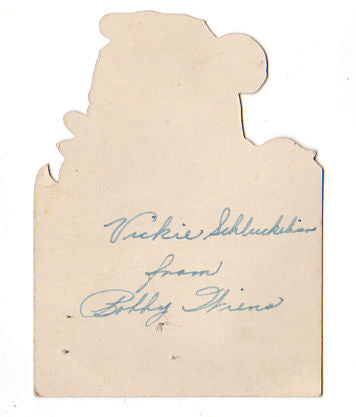 Vickie Schluckebier
from
Bobby Wiens